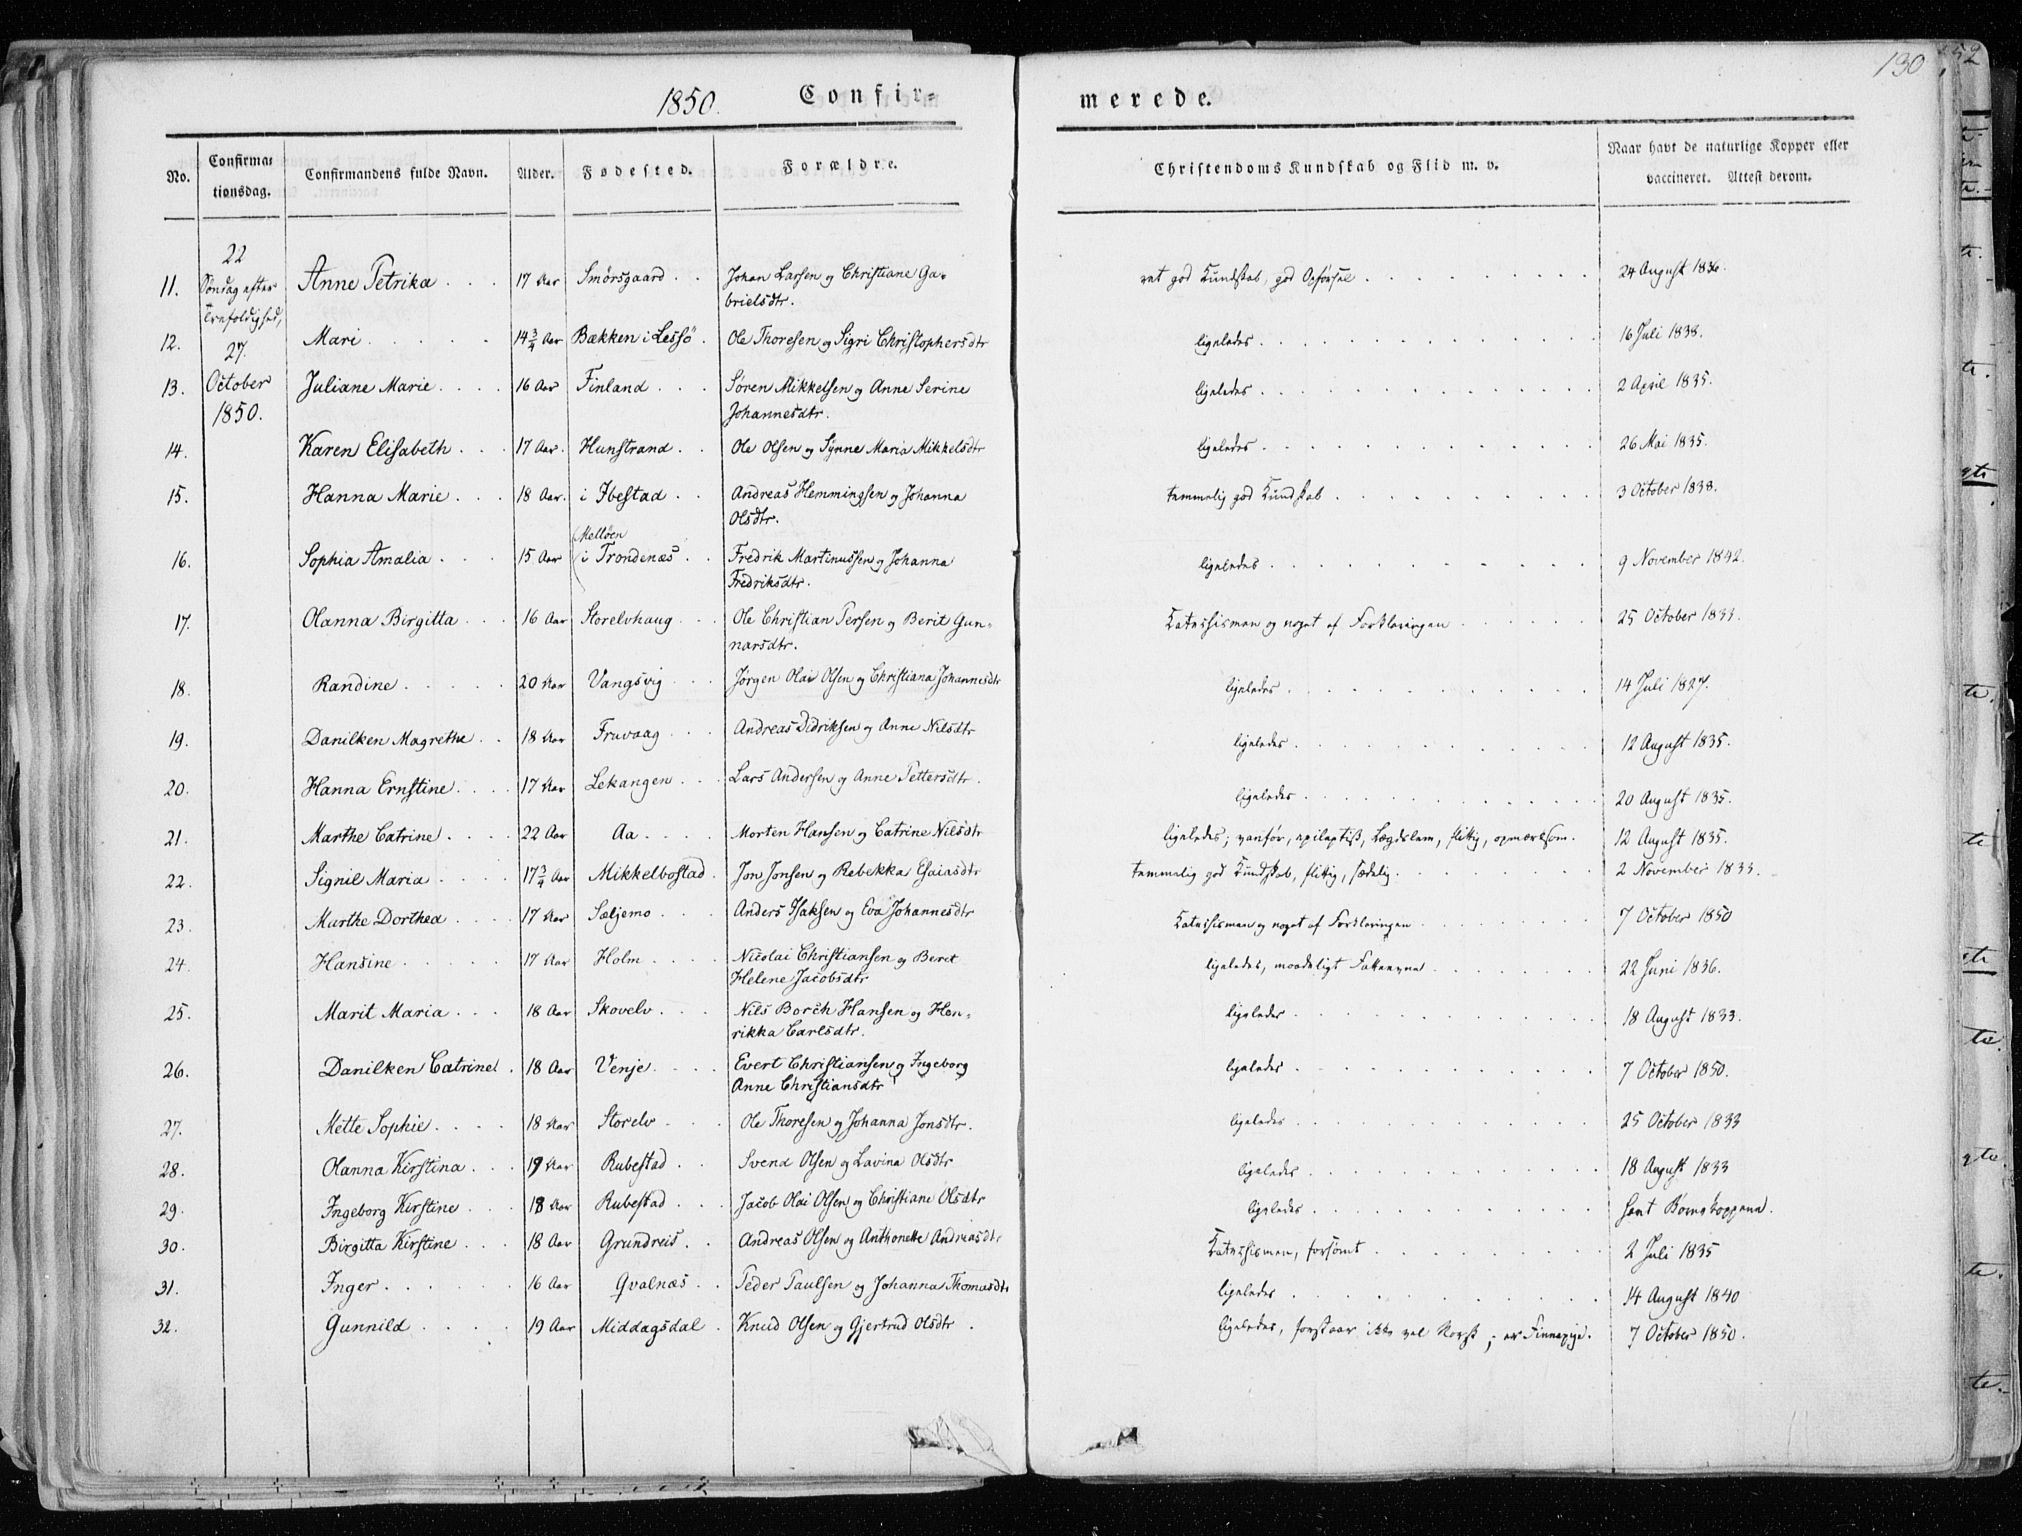 1850. Confir=
merede.
130
No. Confirma=tionsdag. Confirmandens fulde Navn. Alder. Fødested. Forældre. Christendoms Kundskab og Flid m. v. Naar havt de naturlige Kopper eller vaccineret. Attest derom.
22 Søndag efter Trefoldighed, 27. October 1850.
11. Anne Petrika 17 Aar Smørsgaard Johan Larsen og Christiane Ga=brielsdtr. ret god Kundskab, god Opførsel 24 August 1836.
12. Mari 14 3/4 Aar Bækken i Lessö Ole Thoresen og Sigri Christophersdtr ligeledes 16 Juli 1838.
13. Juliane Marie 16 Aar Finland Søren Mikkelsen og Anne Serine Johannesdtr. ligeledes 2 April 1835.
14. Karen Elisabeth 17 Aar Hunstrand Ole Olsen og Synne Maria Mikkelsdtr ligeledes 26 Mai 1835.
15. Hanna Marie 18 Aar. i Ibestad Andreas Hemmingsen og Johanna Olsdtr. temmelig god Kundskab 3 October 1838.
16. Sophia Amalia 15 Aar (Melløen i Trondenæs Fredrik Martinussen og Johanna Fredriksdtr. ligeledes 9 November 1842.
17. Olanna Birgitta 16 Aar Storelvhaug Ole Christian Persen og Berit Gun=narsdtr. Katechismen og noget af Forklaringen 25 October 1833.
18. Randine 20 Aar Vangsvig Jørgen Olai Olsen og Christiana Johannesdtr ligeledes 14 Juli 1827.
19. Danilken Magrethe 18 Aar Fruvaag Andreas Didriksen og Anne Nilsdtr ligeledes 12 August 1835.
20. Hanna Ernstine 17 Aar Lekangen Lars Andersen og Anne Pettersdtr. ligeledes 20 August 1835.
21. Marthe Catrine 22 Aar Aa Morten Hansen og Catrine Nilsdtr ligeledes; vanfør, epileptisk, Lægdslem, flittig, opmærksom. 12 August 1835.
22. Signil Maria 17 3/4 Aar Mikkelbostad Jon Jonsen og Rebekka Esaiasdtr temmelig god Kundskab, flittig, sædelig 2 November 1833.
23. Marthe Dorthea 17 Aar Sæljemo Anders Isaksen og Eva Johannesdtr Katechismen og noget af Forklaringen 7 October 1850
24. Hansine 17 Aar Holm Nicolai Christiansen og Beret Helene Jacobsdtr ligeledes, maadeligt Fatteevne 22 Juni 1836.
25. Marit Maria 18 Aar Skovelv Nils Borch Hansen og Hen=rikka Carlsdtr. ligeledes 18 August 1833.
26. Danilken Catrine 18 Aar Venje Evert Christiansen og Ingeborg Anne Christiansdtr ligeledes 7 October 1850.
27. Mette Sophie 18 Aar Storelv Ole Thoresen og Johanna Jonsdtr. ligeledes 25 October 1833
28. Olanna Kirstina 19 Aar Rubestad Svend Olsen og Lavina Olsdtr ligeledes 18 August 1833
29. Ingeborg Kirstine 18 Aar Rubestad Jacob Olai Olsen og Christiane Olsdtr ligeledes havt Børnekopperne.
30. Birgitta Kirstine 18 Aar Grundreis Andreas Olsen og Anthonette Andreasdtr Katechismen, forsømt 2 Juli 1835
31. Inger 16 Aar Qvalnæs Peder Paulsen og Johanna Thomasdtr ligeledes 14 August 1840
32. Gunnild 19 Aar Middagsdal Knud Olsen og Gjertrud Olsdtr ligeledes, forstaar ikke vel Norsk; er Finnepige. 7 October 1850.